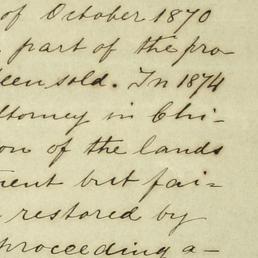 of October 1870
part of the pro-
een sold. In 1874
ttorney in Chi-
on of the lands
ment but fai-
restored by
proceeding a-